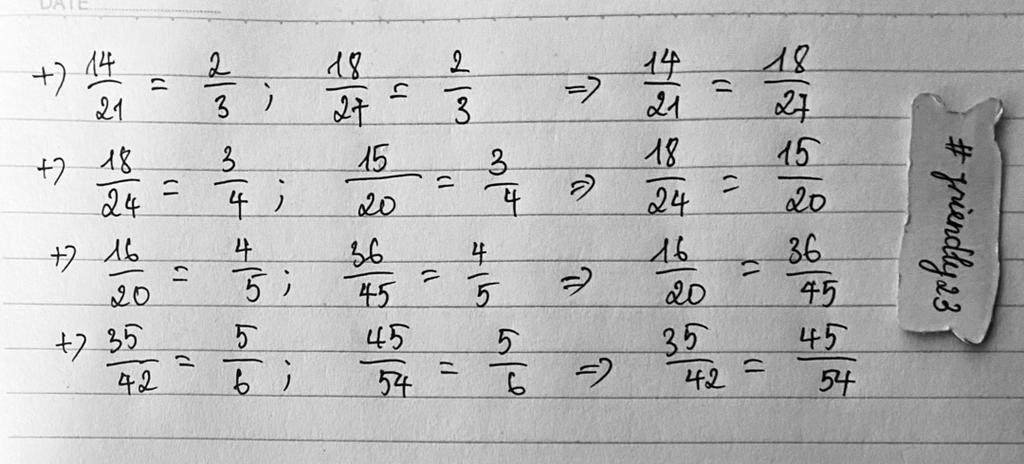 DATE
+) 14/21 = 2/3 ; 18/27 = 2/3 => 14/21 = 18/27
+) 18/24 = 3/4 ; 15/20 = 3/4 => 18/24 = 15/20
+) 16/20 = 4/5 ; 36/45 = 4/5 => 16/20 = 36/45
+) 35/42 = 5/6 ; 45/54 = 5/6 => 35/42 = 45/54
# friendly23